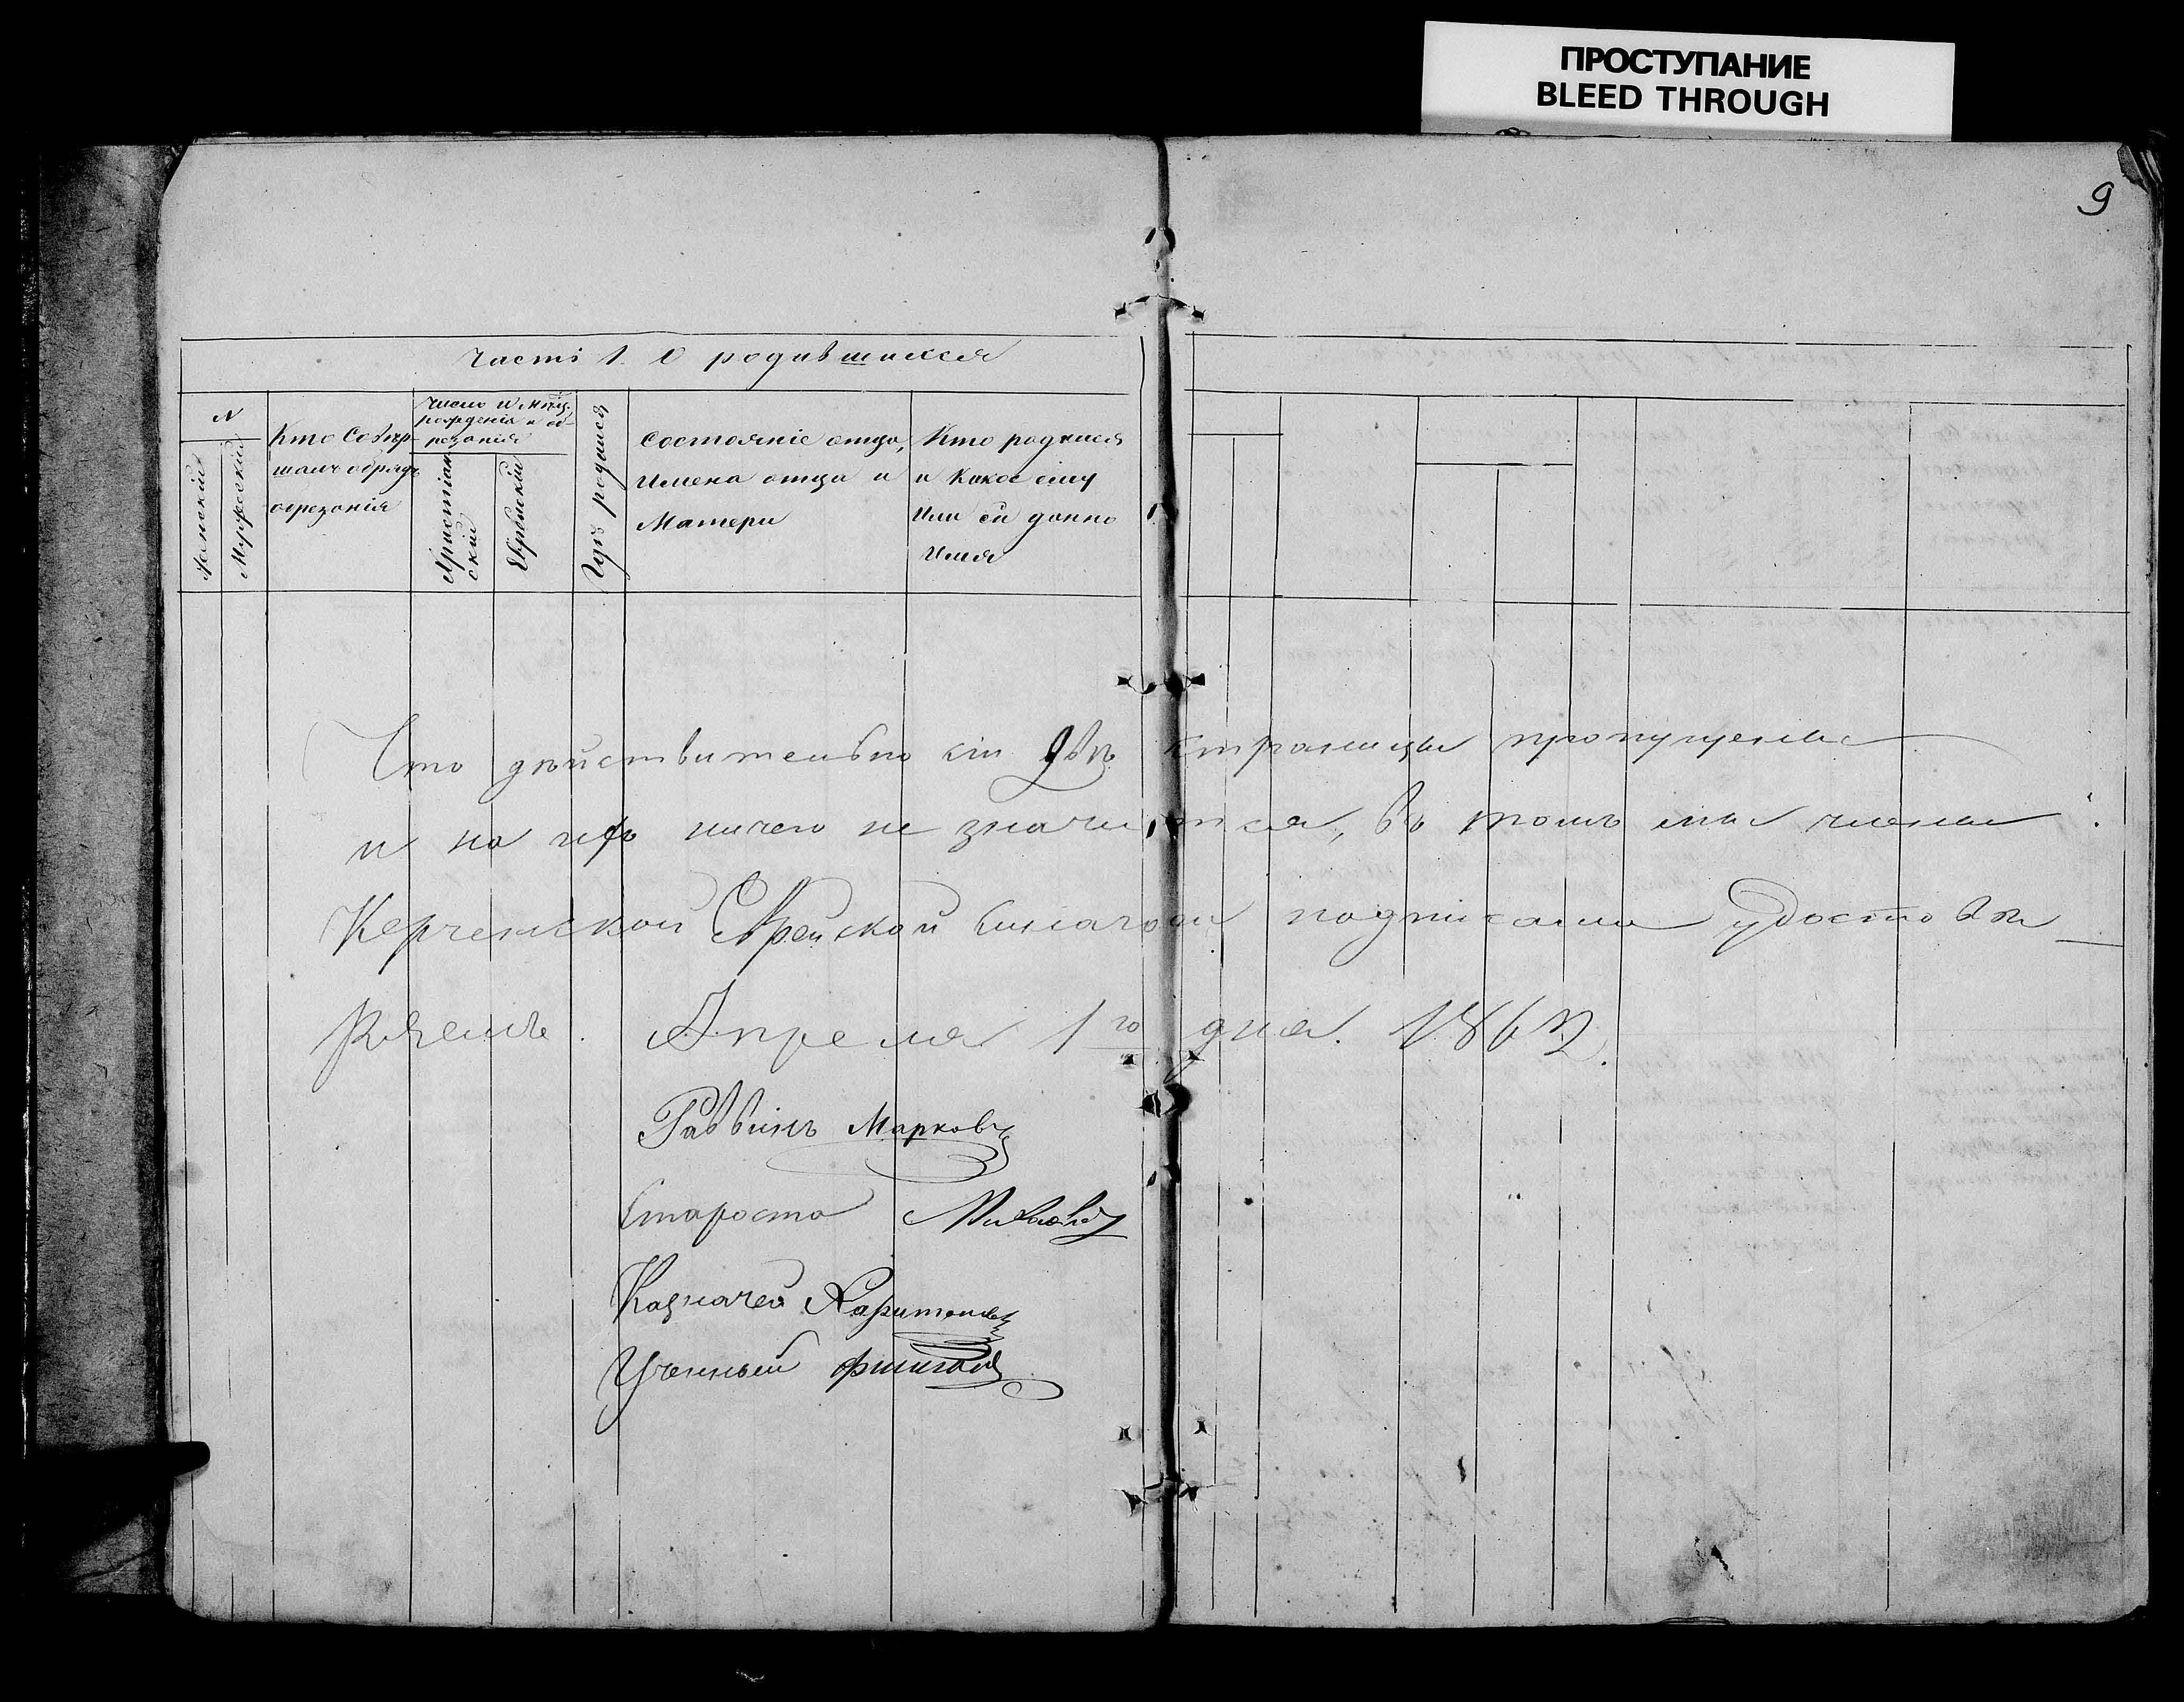 ПРОСТУПАНИЕ
BLEED THROUGH
9
Часть 1. О родившихся
N
Женский
Мужеский
Кто совѣр-
шалъ обрядъ
обрезанія
Число и мѣсяц.
рожденія и об-
резанія
Христіан-
скій
Еврейскій
Годъ родился
Состояніе отца,
Имена отца и
Матери
Кто родился
и какое ему
Или ей данно
Имя
Что дѣйствительно сіи двѣ страницы пропущены
и на ничего не значится, въ томъ мы члены
Керченской Еврейской синагоги подписомъ удостовѣ
ряемъ. Апреля 1го дня. 1862.
Раввинъ Марковъ
Староста
Казначей Харитоновъ
Ученный